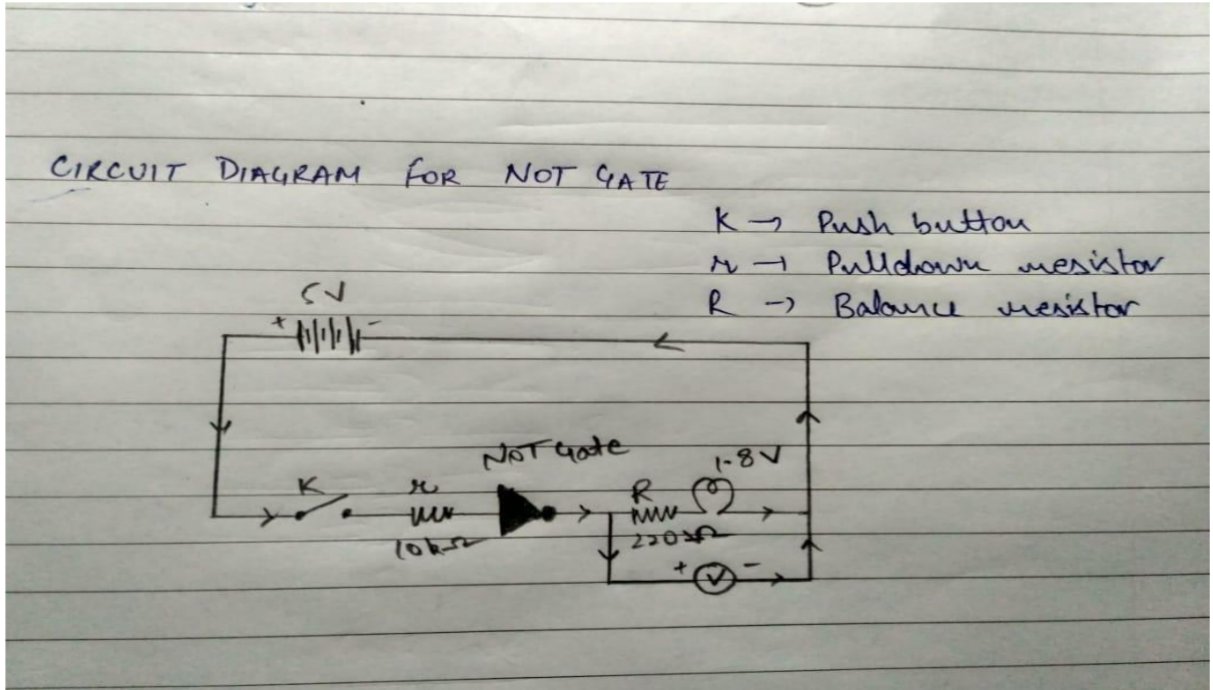 CIRCUIT DIAGRAM FOR NOT GATE
K → Push button
r → Pulldown resistor
R → Balance resistor
5V
+ -
NOT Gate
1.8V
K r R
10kΩ 220Ω
+ V -